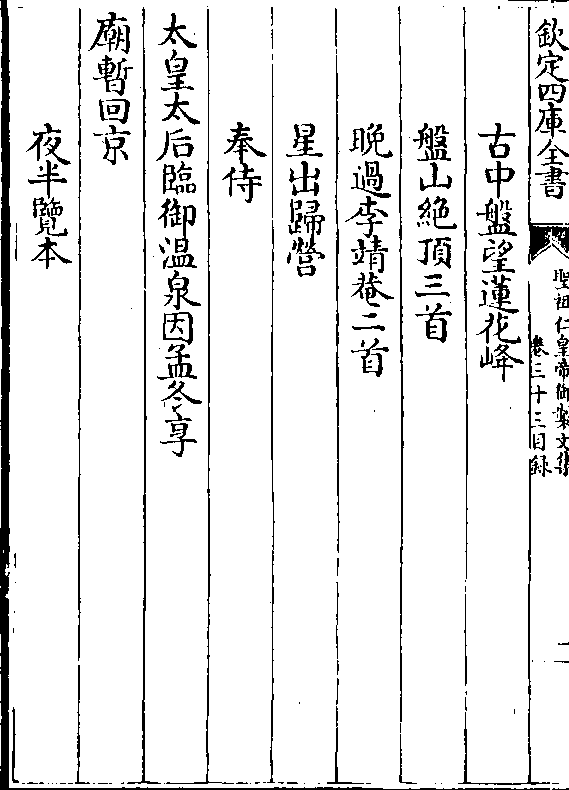 欽定四庫全書
聖祖仁皇帝御製文集
卷三十三目錄
二
古中盤望蓮花峰
盤山絶頂三首
晚過李靖菴二首
星出歸營
奉侍
太皇太后臨御温泉因孟冬享
廟暫回京
夜半覽本